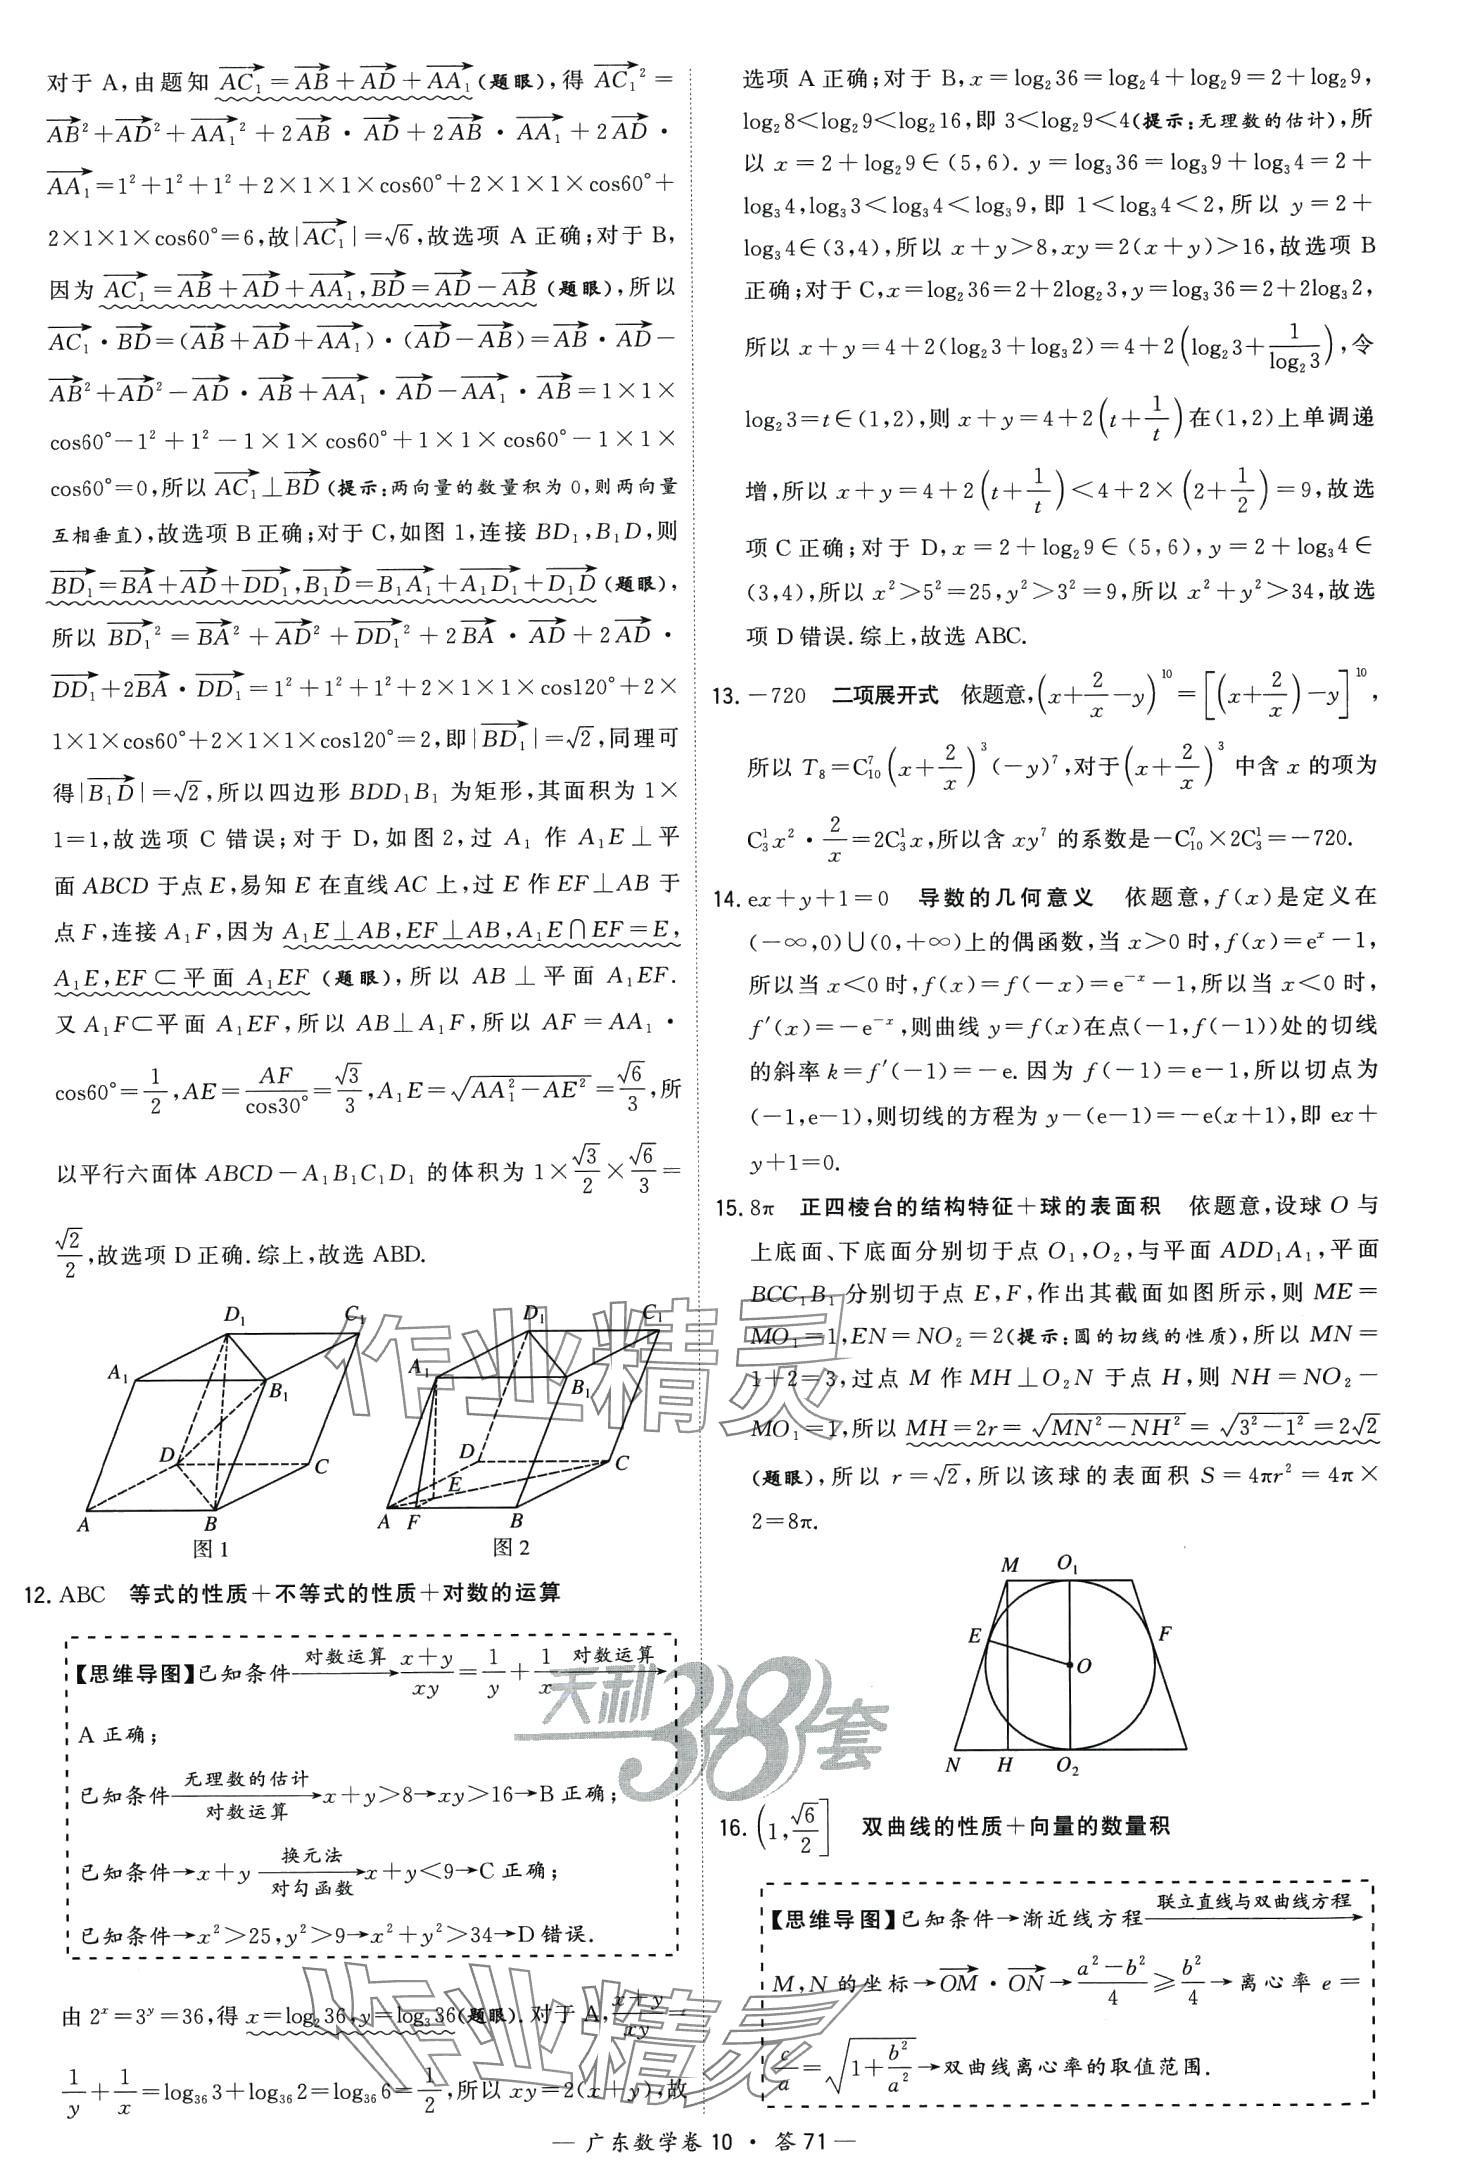 对于 A,由题知 $\overrightarrow{AC_1}=\overrightarrow{AB}+\overrightarrow{AD}+\overrightarrow{AA_1}$(题眼),得 $\overrightarrow{AC_1}^2=$
$\overrightarrow{AB}^2+\overrightarrow{AD}^2+\overrightarrow{AA_1}^2+2\overrightarrow{AB}\cdot\overrightarrow{AD}+2\overrightarrow{AB}\cdot\overrightarrow{AA_1}+2\overrightarrow{AD}\cdot$
$\overrightarrow{AA_1}=1^2+1^2+1^2+2×1×1×\cos60°+2×1×1×\cos60°+$
$2×1×1×\cos60°=6$,故$|\overrightarrow{AC_1}|=\sqrt{6}$,故选项 A 正确;对于 B,
因为 $\overrightarrow{AC_1}=\overrightarrow{AB}+\overrightarrow{AD}+\overrightarrow{AA_1},\overrightarrow{BD}=\overrightarrow{AD}-\overrightarrow{AB}$(题眼),所以
$\overrightarrow{AC_1}\cdot\overrightarrow{BD}=(\overrightarrow{AB}+\overrightarrow{AD}+\overrightarrow{AA_1})\cdot(\overrightarrow{AD}-\overrightarrow{AB})=\overrightarrow{AB}\cdot\overrightarrow{AD}-$
$\overrightarrow{AB}^2+\overrightarrow{AD}^2-\overrightarrow{AD}\cdot\overrightarrow{AB}+\overrightarrow{AA_1}\cdot\overrightarrow{AD}-\overrightarrow{AA_1}\cdot\overrightarrow{AB}=1×1×$
$\cos60°-1^2+1^2-1×1×\cos60°+1×1×\cos60°-1×1×$
$\cos60°=0$,所以 $\overrightarrow{AC_1}⊥\overrightarrow{BD}$(提示:两向量的数量积为 0,则两向量
互相垂直),故选项 B 正确;对于 C,如图 1,连接 $BD_1,B_1D$,则
$\overrightarrow{BD_1}=\overrightarrow{BA}+\overrightarrow{AD}+\overrightarrow{DD_1},\overrightarrow{B_1D}=\overrightarrow{B_1A_1}+\overrightarrow{A_1D_1}+\overrightarrow{D_1D}$(题眼),
所以 $\overrightarrow{BD_1}^2=\overrightarrow{BA}^2+\overrightarrow{AD}^2+\overrightarrow{DD_1}^2+2\overrightarrow{BA}\cdot\overrightarrow{AD}+2\overrightarrow{AD}\cdot$
$\overrightarrow{DD_1}+2\overrightarrow{BA}\cdot\overrightarrow{DD_1}=1^2+1^2+1^2+2×1×1×\cos120°+2×$
$1×1×\cos60°+2×1×1×\cos120°=2$,即$|\overrightarrow{BD_1}|=\sqrt{2}$,同理可
得$|\overrightarrow{B_1D}|=\sqrt{2}$,所以四边形 $BDD_1B_1$ 为矩形,其面积为 1×
1=1,故选项 C 错误;对于 D,如图 2,过 $A_1$ 作 $A_1E⊥$平
面 ABCD 于点 E,易知 E 在直线 AC 上,过 E 作 EF⊥AB 于
点 F,连接 $A_1F$,因为 $A_1E⊥AB,EF⊥AB,A_1E∩EF=E,$
$A_1E,EF⊂$平面 $A_1EF$(题眼),所以 AB⊥平面 $A_1EF$.
又 $A_1F⊂$平面 $A_1EF$,所以 $AB⊥A_1F$,所以 $AF=AA_1\cdot$
$\cos60°=\frac{1}{2},AE=\frac{AF}{\cos30°}=\frac{\sqrt{3}}{3},A_1E=\sqrt{AA_1^2-AE^2}=\frac{\sqrt{6}}{3}$,所
以平行六面体 $ABCD-A_1B_1C_1D_1$ 的体积为 $1×\frac{\sqrt{3}}{2}×\frac{\sqrt{6}}{3}=$
$\frac{\sqrt{2}}{2}$,故选项 D 正确.综上,故选 ABD.
D₁ C₁ A₁ B₁ D C A B
图 1
D₁ C₁ A₁ B₁ D C E A F B
图 2
12. ABC 等式的性质+不等式的性质+对数的运算
【思维导图】已知条件 $\xrightarrow{对数运算}\frac{x+y}{xy}=\frac{1}{y}+\frac{1}{x}\xrightarrow{对数运算}$
A 正确;
已知条件 $\xrightarrow[对数运算]{无理数的估计}x+y>8→xy>16→$B 正确;
已知条件→$x+y\xrightarrow[对勾函数]{换元法}x+y<9→$C 正确;
已知条件→$x^2>25,y^2>9→x^2+y^2>34→$D 错误.
由 $2^x=3^y=36$,得 $x=\log_2 36,y=\log_3 36$(题眼).对于 A,$\frac{x+y}{xy}=$
$\frac{1}{y}+\frac{1}{x}=\log_{36}3+\log_{36}2=\log_{36}6=\frac{1}{2}$,所以 $xy=2(x+y)$,故
选项 A 正确;对于 B,$x=\log_2 36=\log_2 4+\log_2 9=2+\log_2 9,$
$\log_2 8<\log_2 9<\log_2 16$,即 $3<\log_2 9<4$(提示:无理数的估计),所
以 $x=2+\log_2 9∈(5,6)$. $y=\log_3 36=\log_3 9+\log_3 4=2+$
$\log_3 4,\log_3 3<\log_3 4<\log_3 9$,即 $1<\log_3 4<2$,所以 $y=2+$
$\log_3 4∈(3,4)$,所以 $x+y>8,xy=2(x+y)>16$,故选项 B
正确;对于 C,$x=\log_2 36=2+2\log_2 3,y=\log_3 36=2+2\log_3 2,$
所以 $x+y=4+2(\log_2 3+\log_3 2)=4+2\left(\log_2 3+\frac{1}{\log_2 3}\right)$,令
$\log_2 3=t∈(1,2)$,则 $x+y=4+2\left(t+\frac{1}{t}\right)$在$(1,2)$上单调递
增,所以 $x+y=4+2\left(t+\frac{1}{t}\right)<4+2×\left(2+\frac{1}{2}\right)=9$,故选
项 C 正确;对于 D,$x=2+\log_2 9∈(5,6),y=2+\log_3 4∈$
$(3,4)$,所以 $x^2>5^2=25,y^2>3^2=9$,所以 $x^2+y^2>34$,故选
项 D 错误.综上,故选 ABC.
13. −720 二项展开式 依题意,$\left(x+\frac{2}{x}-y\right)^{10}=\left[\left(x+\frac{2}{x}\right)-y\right]^{10},$
所以 $T_8=C_{10}^7\left(x+\frac{2}{x}\right)^3(-y)^7$,对于$\left(x+\frac{2}{x}\right)^3$ 中含 x 的项为
$C_3^1x^2\cdot\frac{2}{x}=2C_3^1x$,所以含 $xy^7$ 的系数是$-C_{10}^7×2C_3^1=-720$.
14. ex+y+1=0 导数的几何意义 依题意,f(x)是定义在
(−∞,0)∪(0,+∞)上的偶函数,当 x>0 时,$f(x)=e^x-1$,
所以当 x<0 时,$f(x)=f(-x)=e^{-x}-1$,所以当 x<0 时,
$f'(x)=-e^{-x}$,则曲线 y=f(x)在点(−1,f(−1))处的切线
的斜率 k=f′(−1)=−e.因为 f(−1)=e−1,所以切点为
(−1,e−1),则切线的方程为 y−(e−1)=−e(x+1),即 ex+
y+1=0.
15. 8π 正四棱台的结构特征+球的表面积 依题意,设球 O 与
上底面、下底面分别切于点 $O_1,O_2$,与平面 $ADD_1A_1$,平面
$BCC_1B_1$ 分别切于点 E,F,作出其截面如图所示,则 ME=
$MO_1=1,EN=NO_2=2$(提示:圆的切线的性质),所以 MN=
1+2=3,过点 M 作 $MH⊥O_2N$ 于点 H,则 $NH=NO_2-$
$MO_1=1$,所以 $MH=2r=\sqrt{MN^2-NH^2}=\sqrt{3^2-1^2}=2\sqrt{2}$
(题眼),所以 $r=\sqrt{2}$,所以该球的表面积 $S=4πr^2=4π×$
2=8π.
M O₁ E F O N H O₂
16. $\left(1,\frac{\sqrt{6}}{2}\right]$ 双曲线的性质+向量的数量积
【思维导图】已知条件→渐近线方程 $\xrightarrow{联立直线与双曲线方程}$
M,N 的坐标→$\overrightarrow{OM}\cdot\overrightarrow{ON}→\frac{a^2-b^2}{4}≥\frac{b^2}{4}→$离心率 e=
$\frac{c}{a}=\sqrt{1+\frac{b^2}{a^2}}→$双曲线离心率的取值范围.
作业精灵
天利38套
作业精灵
— 广东数学卷 10 · 答 71 —